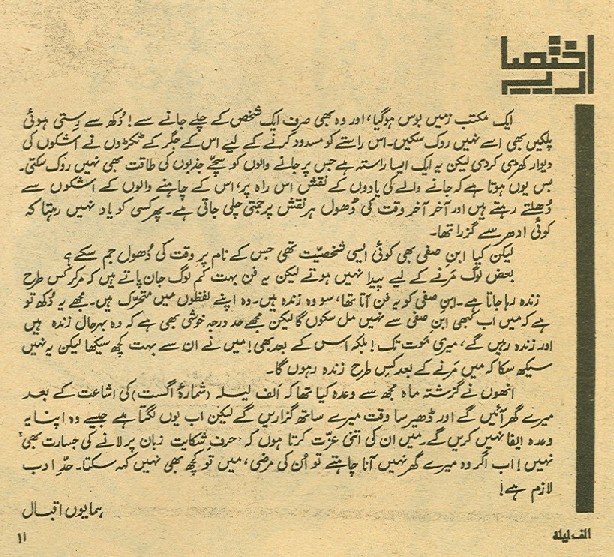 اختصاریے
ایک مکتب زمیں بوس ہوگیا، اور وہ بھی صرف ایک شخص کے چلے جانے سے! دُکھ سے رِستی ہوئی
پلکیں بھی اسے نہیں روک سکیں۔ اس راستے کو مسدود کرنے کے لیے اس کے جگر کے ٹکڑوں نے اشکوں کی
دیوار کھڑی کردی لیکن یہ ایک ایسا راستہ ہے جس پر جانے والوں کو سچّے جذبوں کی طاقت بھی نہیں روک سکتی۔
بس یوں ہوتا ہے کہ جانے والے کی یادوں کے نقش اس راہ پر، اس کے چاہنے والوں کے اشکوں سے
دُھلتے رہتے ہیں اور آخر آخر وقت کی دُھول ہر نقش پر جمتی چلی جاتی ہے۔ پھر کسی کو یاد نہیں رہتا کہ
کوئی ادھر سے گزرا تھا۔
لیکن کیا ابنِ صفی بھی کوئی ایسی شخصیّت تھی جس کے نام پر وقت کی دُھول جم سکے؟
بعض لوگ مَرنے کے لیے پیدا نہیں ہوتے لیکن یہ فن بہت کم لوگ جان پاتے ہیں کہ مَر کر کس طرح
زندہ رہا جاتا ہے۔ ابنِ صفی کو یہ فن آتا تھا، سو وہ زندہ ہیں۔ وہ اپنے لفظوں میں متحرّک ہیں۔ مجھے یہ دُکھ تو
ہے کہ میں اب کبھی ابنِ صفی سے نہیں مل سکوں گا لیکن مجھے حد درجہ خوشی بھی ہے کہ وہ بہرحال زندہ ہیں
اور زندہ رہیں گے، میری موت تک! بلکہ اس کے بعد بھی! میں نے ان سے بہت کچھ سیکھا لیکن یہ نہیں
سیکھ سکا کہ میں مَرنے کے بعد کس طرح زندہ رہوں گا۔
اُنھوں نے گزشتہ ماہ مجھ سے وعدہ کیا تھا کہ الف لیلہ (شمارۂ اگست) کی اشاعت کے بعد
میرے گھر آئیں گے اور ڈھیر سا وقت میرے ساتھ گزاریں گے لیکن اب یوں لگتا ہے جیسے وہ اپنا یہ
وعدہ ایفا نہیں کریں گے۔ میں ان کی اتنی عزت کرتا ہوں کہ حرفِ شکایت زبان پر لانے کی جسارت بھی
نہیں! اب اگر وہ میرے گھر نہیں آنا چاہتے تو اُن کی مرضی، میں تو کچھ بھی نہیں کہہ سکتا۔ حدِّ ادب
لازم ہے!
ہمایوں اقبال
الف لیلہ
۱۱